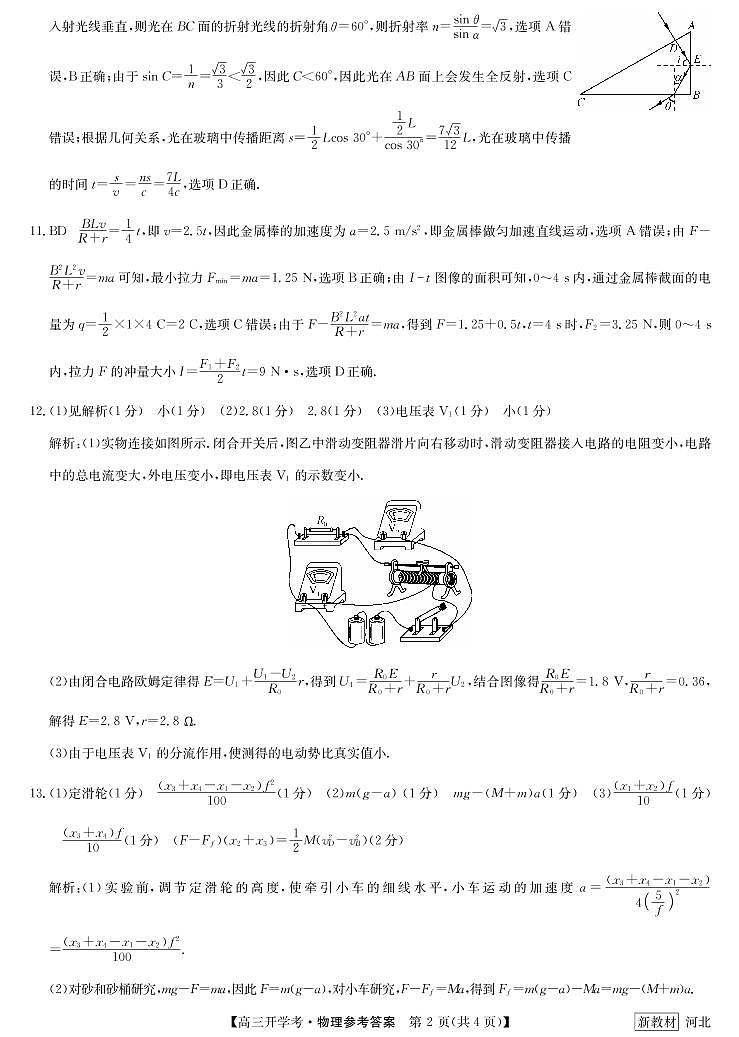 入射光线垂直,则光在 BC 面的折射光线的折射角 θ=60°,则折射率 n=\frac{sin θ}{sin α}=√3,选项 A 错
误,B 正确;由于 sin C=\frac{1}{n}=\frac{√3}{3}<\frac{√3}{2},因此 C<60°,因此光在 AB 面上会发生全反射,选项 C
错误;根据几何关系,光在玻璃中传播距离 s=\frac{1}{2}Lcos 30°+\frac{\frac{1}{2}L}{cos 30°}=\frac{7√3}{12}L,光在玻璃中传播
的时间 t=\frac{s}{v}=\frac{ns}{c}=\frac{7L}{4c},选项 D 正确.
A
D
i
E
α
C
B
θ
11. BD \frac{BLv}{R+r}=\frac{1}{4}t,即 v=2.5t,因此金属棒的加速度为 a=2.5 m/s²,即金属棒做匀加速直线运动,选项 A 错误;由 F-
\frac{B²L²v}{R+r}=ma 可知,最小拉力 F_{min}=ma=1.25 N,选项 B 正确;由 I-t 图像的面积可知,0~4 s 内,通过金属棒截面的电
量为 q=\frac{1}{2}×1×4 C=2 C,选项 C 错误;由于 F-\frac{B²L²at}{R+r}=ma,得到 F=1.25+0.5t,t=4 s 时,F₂=3.25 N,则 0~4 s
内,拉力 F 的冲量大小 I=\frac{F₁+F₂}{2}t=9 N·s,选项 D 正确.
12. (1)见解析(1 分) 小(1 分) (2)2.8(1 分) 2.8(1 分) (3)电压表 V₁(1 分) 小(1 分)
解析:(1)实物连接如图所示.闭合开关后,图乙中滑动变阻器滑片向右移动时,滑动变阻器接入电路的电阻变小,电路
中的总电流变大,外电压变小,即电压表 V₁ 的示数变小.
R₀
V₁
(2)由闭合电路欧姆定律得 E=U₁+\frac{U₁-U₂}{R₀}r,得到 U₁=\frac{R₀E}{R₀+r}+\frac{r}{R₀+r}U₂,结合图像得\frac{R₀E}{R₀+r}=1.8 V,\frac{r}{R₀+r}=0.36,
解得 E=2.8 V,r=2.8 Ω.
(3)由于电压表 V₁ 的分流作用,使测得的电动势比真实值小.
13. (1)定滑轮(1 分) \frac{(x₃+x₄-x₁-x₂)f²}{100}(1 分) (2)m(g-a)(1 分) mg-(M+m)a(1 分) (3)\frac{(x₁+x₂)f}{10}(1 分)
\frac{(x₃+x₄)f}{10}(1 分) (F-F_f)(x₂+x₃)=\frac{1}{2}M(v_D²-v_B²)(2 分)
解析:(1)实验前,调节定滑轮的高度,使牵引小车的细线水平,小车运动的加速度 a=\frac{(x₃+x₄-x₁-x₂)}{4(\frac{5}{f})²}
=\frac{(x₃+x₄-x₁-x₂)f²}{100}.
(2)对砂和砂桶研究,mg-F=ma,因此 F=m(g-a),对小车研究,F-F_f=Ma,得到 F_f=m(g-a)-Ma=mg-(M+m)a.
【高三开学考·物理参考答案 第 2 页(共 4 页)】 新教材 河北